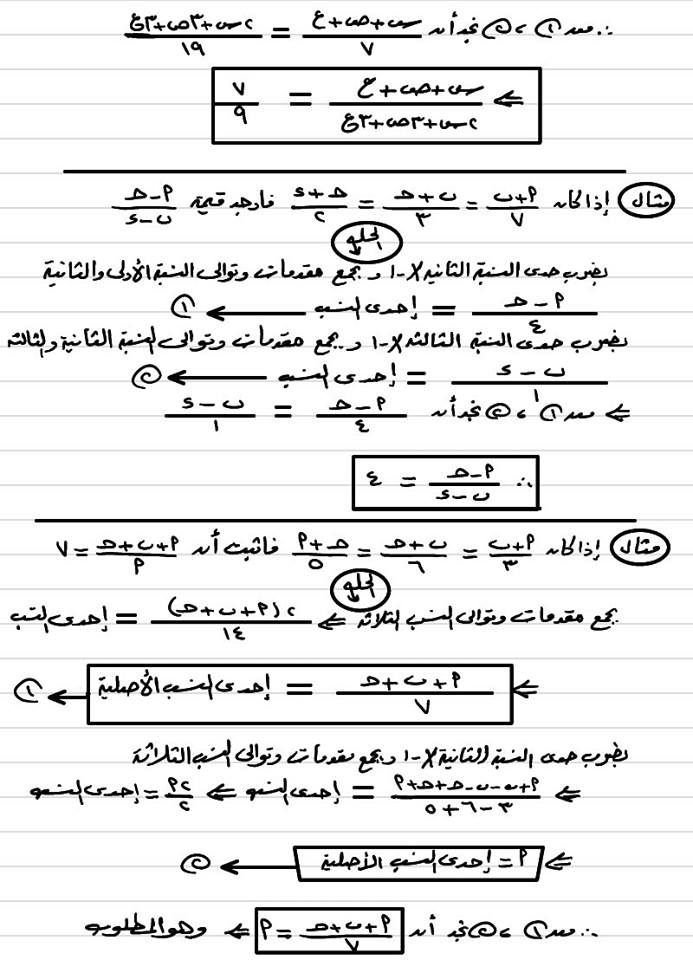 ∴ من ①، ② نجد أن (س+ص+ع)/٧ = (٢س+٣ص+٣ع)/١٩
⇐ (س+ص+ع)/(٢س+٣ص+٣ع) = ٧/٩
مثال إذا كان (أ+ب)/٧ = (ب+ح)/٣ = (ح+ء)/٢ فأوجد قيمة (أ-ح)/(ب-ء)
الحل
بضرب حدى النسبة الثانية ×-١ و بجمع مقدمات وتوالى النسبة الأولى والثانية
(أ-ح)/٤ = إحدى النسب ← ①
بضرب حدى النسبة الثالثة ×-١ و بجمع مقدمات وتوالى النسبة الثانية والثالثة
(ب-ء)/١ = إحدى النسب ← ②
⇐ من ①، ② نجد أن (أ-ح)/٤ = (ب-ء)/١
∴ (أ-ح)/(ب-ء) = ٤
مثال إذا كان (أ+ب)/٣ = (ب+ح)/٦ = (ح+أ)/٥ فاثبت أن (أ+ب+ح)/أ = ٧
الحل
بجمع مقدمات وتوالى النسب الثلاثة ⇐ ٢(أ+ب+ح)/١٤ = إحدى النسب
⇐ (أ+ب+ح)/٧ = إحدى النسب الأصلية ← ①
بضرب حدى النسبة الثانية ×-١ و بجمع مقدمات وتوالى النسب الثلاثة
⇐ (أ+ب-ب-ح+ح+أ)/(٣-٦+٥) = إحدى النسب ⇐ ٢أ/٢ = إحدى النسب
⇐ أ = إحدى النسب الأصلية ← ②
∴ من ①، ② نجد أن (أ+ب+ح)/٧ = أ ⇐ وهو المطلوب